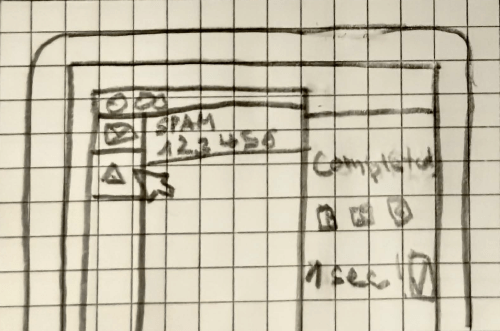 SPAM
123456
Completed
1 sec